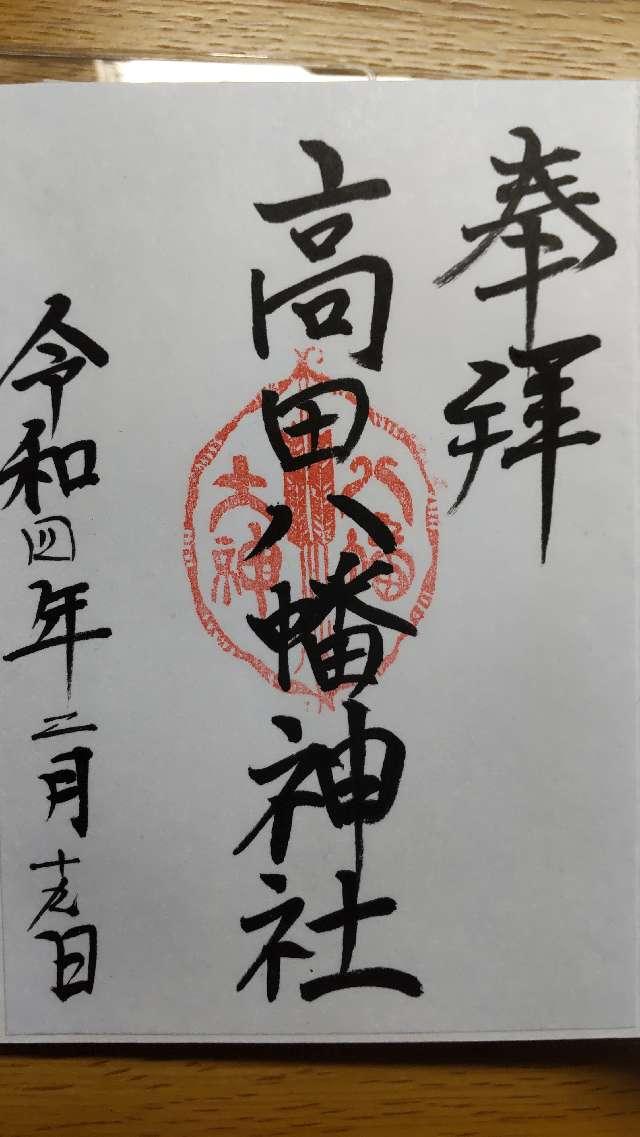 奉拝
高田八幡神社
八幡
大神
令和四年二月十九日